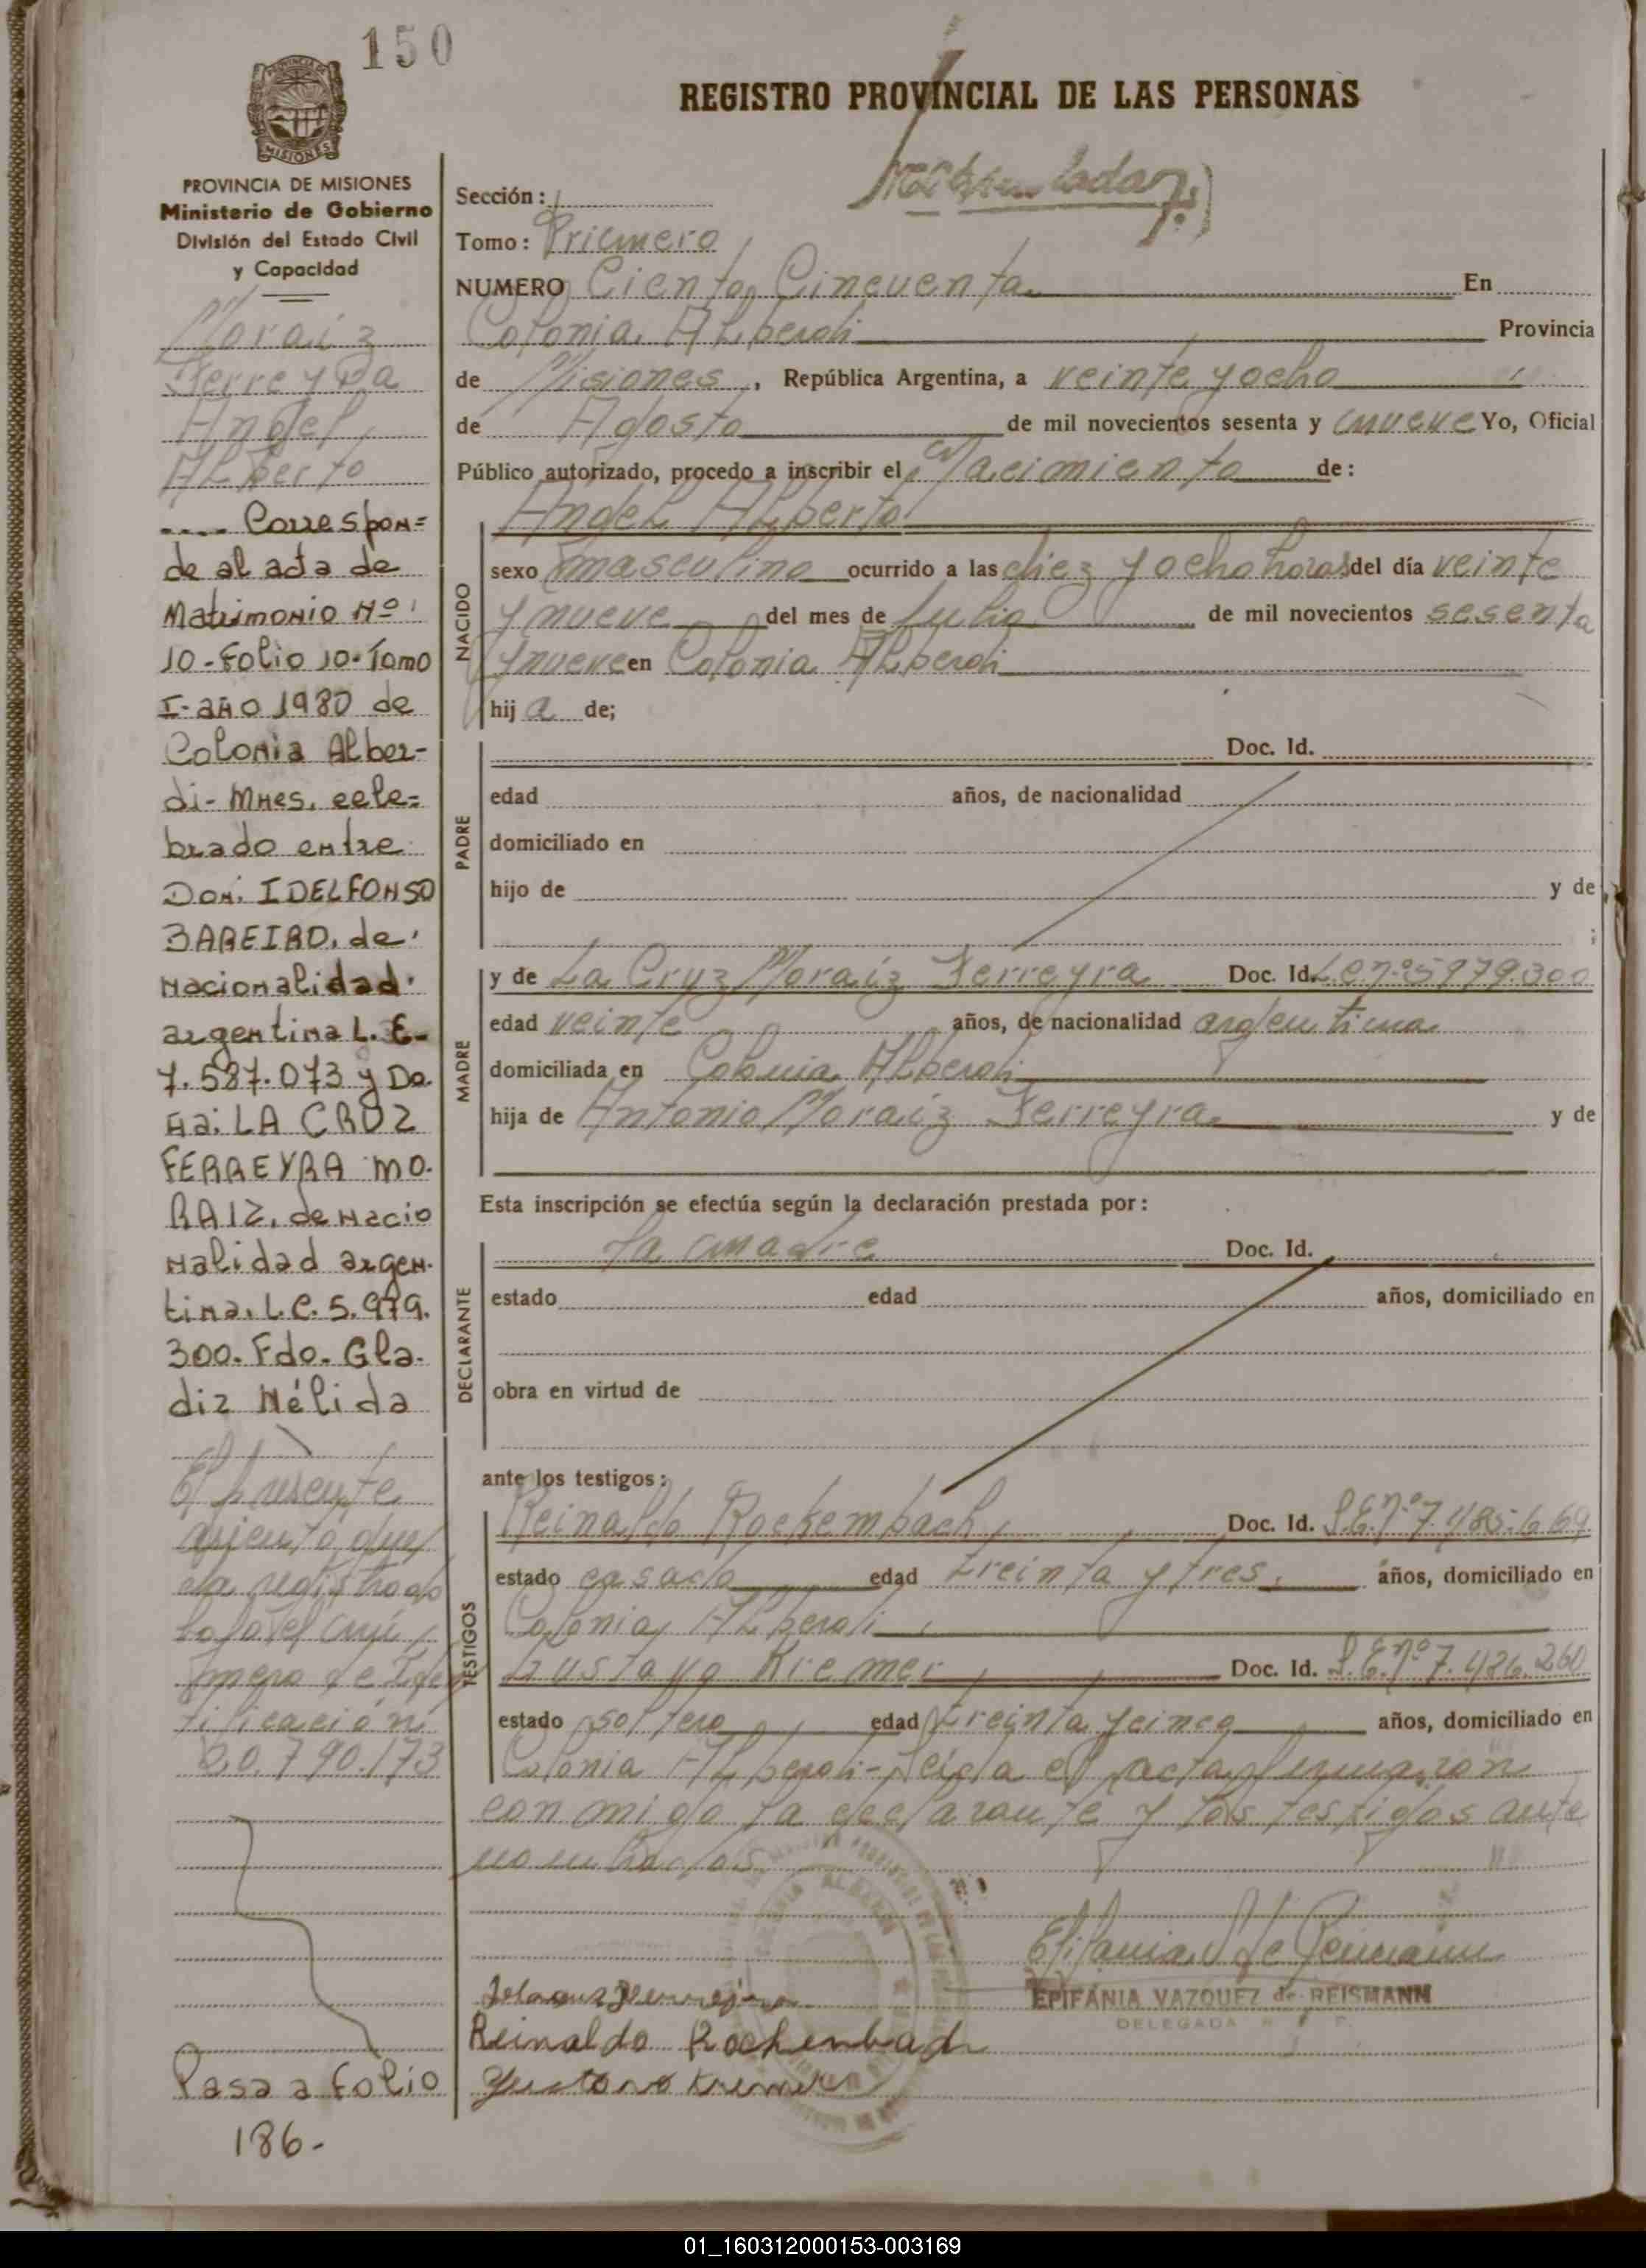 150
REGISTRO PROVINCIAL DE LAS PERSONAS
MISIONES
PROVINCIA DE MISIONES
Ministerio de Gobierno
División del Estado Civil
y Capacidad
Moraiz
Ferreyra
Angel
Alberto
.... Correspon=
de al acta de
Matrimonio Nº
10-Folio 10-Tomo
I-año 1980 de
Colonia Alber-
di- Mnes. cele=
brado entre
Don: IDELFONSO
BAREIRO, de
nacionalidad
argentina L. E-
7.587.073 y Do.
ña: LA CRUZ
FERREYRA MO.
RAIZ, de nacio
nalidad argen.
tina. L.C. 5.979.
300. Fdo. Gla.
diz Nélida
El presente
asiento que
da registrado
bajo el Nú
mero de Iden
tificación
20.790.173
Pasa a Folio
186-
Sección:
Tomo: Primero
NUMERO Ciento Cincuenta En
Colonia Alberdi Provincia
de Misiones, República Argentina, a veinte y ocho
de Agosto de mil novecientos sesenta y nueve Yo, Oficial
Público autorizado, procedo a inscribir el Nacimiento de:
NACIDO
Angel Alberto
sexo masculino ocurrido a las diez y ocho horas del día veinte
y nueve del mes de Julio de mil novecientos sesenta
y nueve en Colonia Alberdi
hij a de;
PADRE
Doc. Id.
edad años, de nacionalidad
domiciliado en
hijo de y de
;
MADRE
y de La Cruz Moraiz Ferreyra Doc. Id. L.C. nº 5979.300
edad veinte años, de nacionalidad argentina
domiciliada en Colonia Alberdi
hija de Antonio Moraiz Ferreyra y de
Esta inscripción se efectúa según la declaración prestada por:
DECLARANTE
la madre Doc. Id.
estado edad años, domiciliado en
obra en virtud de
ante los testigos:
TESTIGOS
Reinaldo Rockembach Doc. Id. L.E. nº 7.485.669
estado casado edad treinta y tres años, domiciliado en
Colonia Alberdi
Gustavo Kremer Doc. Id. L.E. nº 7.486.260
estado soltero edad treinta y cinco años, domiciliado en
Colonia Alberdi- Leída el acta firmaron
conmigo la declarante y los testigos ante
nombrados
EPIFANIA VAZQUEZ de REISMANN
DELEGADA
Reinaldo Rochenbach
Gustavo Kremer
01_160312000153-003169